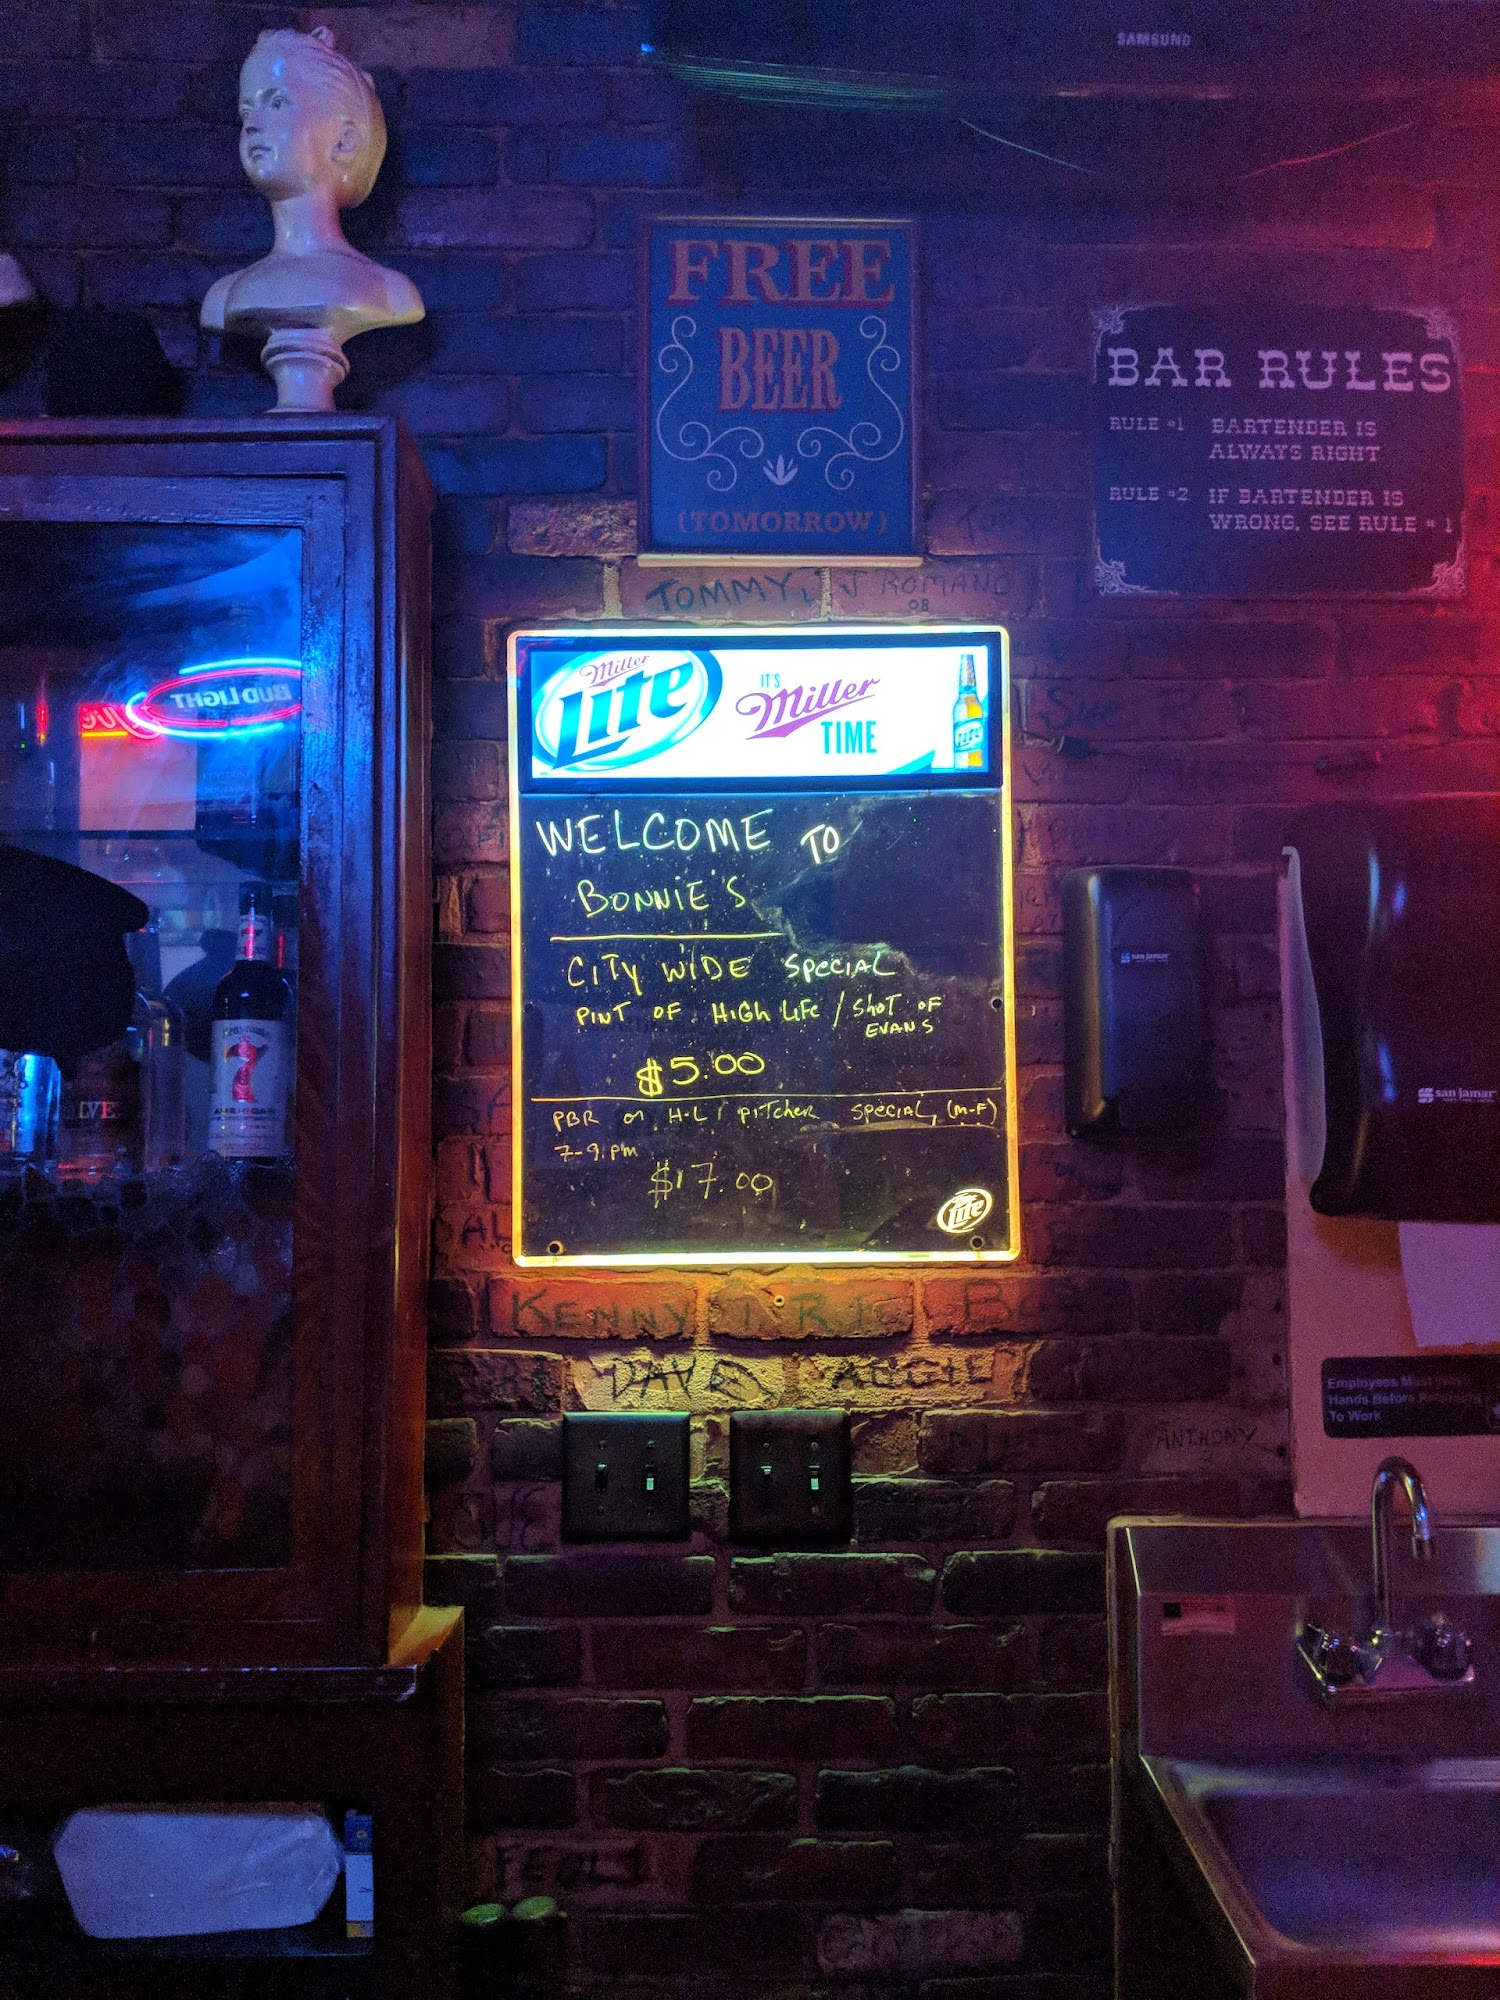 SAMSUNG
FREE
BEER
(TOMORROW)
BAR RULES
RULE #1 BARTENDER IS
ALWAYS RIGHT
RULE #2 IF BARTENDER IS
WRONG, SEE RULE #1
TOMMY J ROMANO
08
Miller
Lite
IT'S
Miller
TIME
BUD LIGHT
WELCOME TO
BONNIE'S
CITY WIDE SPECIAL
PINT OF HIGH LIFE / SHOT OF
EVANS
$5.00
PBR or H-L PITCHER SPECIAL, (M-F)
7-9 PM
$17.00
Lite
7
AMERICAN
san jamar
san jamar
KENNY
DAVE AGGIE
ANTHONY
Employees Must
Hands Before
To Work
FEOLI